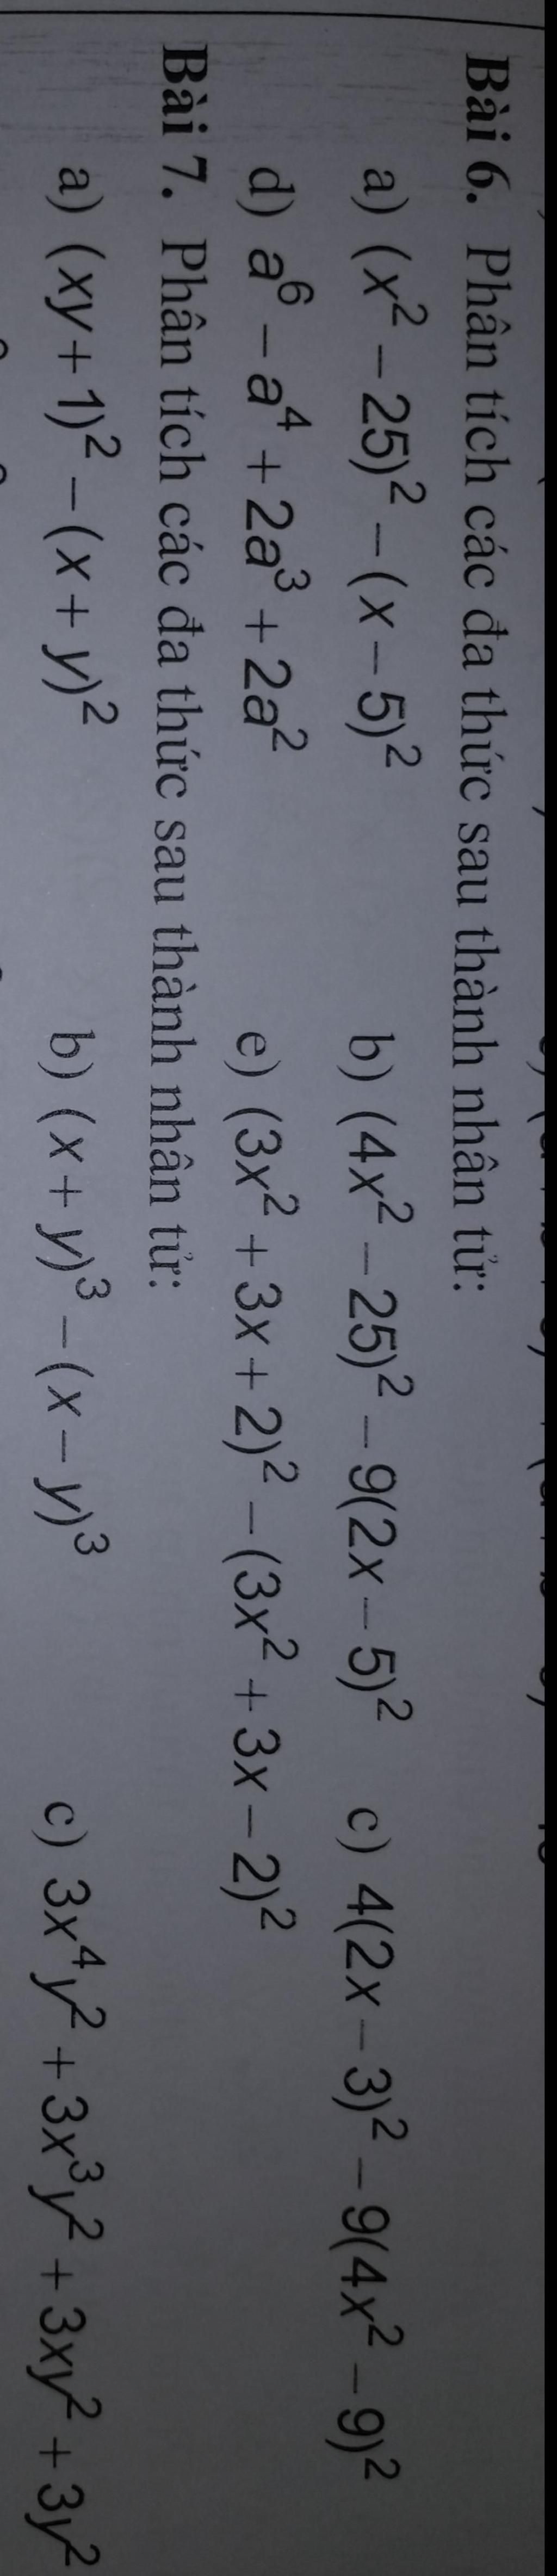 Bài 6. Phân tích các đa thức sau thành nhân tử:
a) (x² – 25)² – (x – 5)² b) (4x² – 25)² – 9(2x – 5)² c) 4(2x – 3)² – 9(4x² – 9)²
d) a⁶ – a⁴ + 2a³ + 2a² e) (3x² + 3x + 2)² – (3x² + 3x – 2)²
Bài 7. Phân tích các đa thức sau thành nhân tử:
a) (xy + 1)² – (x + y)² b) (x + y)³ – (x – y)³ c) 3x⁴y² + 3x³y² + 3xy² + 3y²